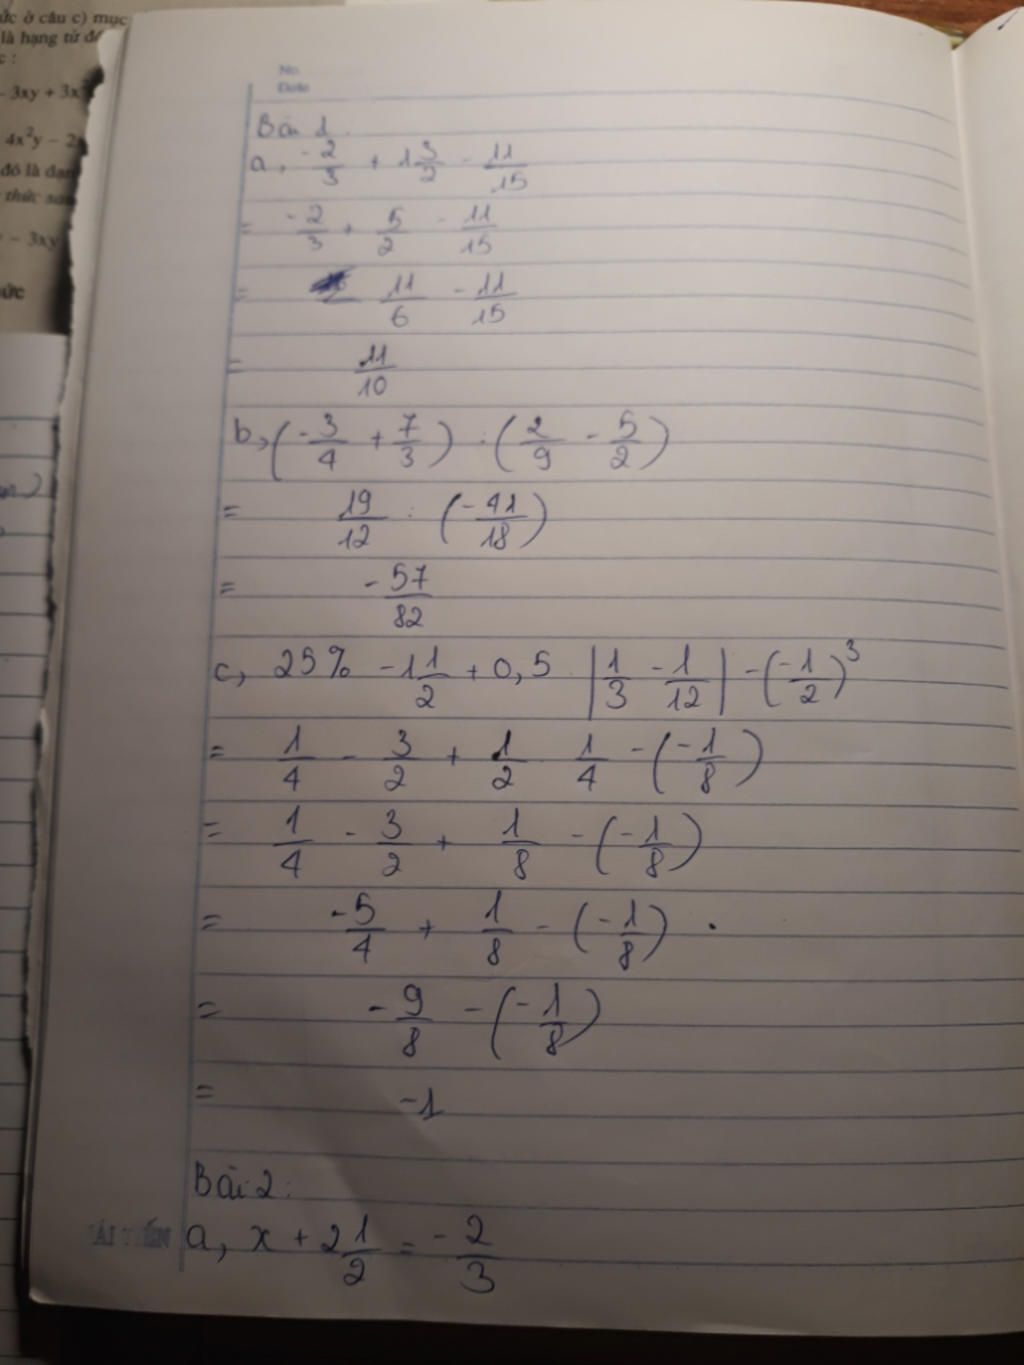 ức ở câu c) mục
là hạng tử
- 3xy + 3x
4x²y - 2
đó là
thức
- 3xy
ức
No.
Date
Bài 1:
a, -2/3 + 1 3/2 - 11/15
= -2/3 + 5/2 - 11/15
= 11/6 - 11/15
= 11/10
b, (-3/4 + 7/3) : (2/9 - 5/2)
= 19/12 : (-41/18)
= -57/82
c, 25% - 1 1/2 + 0,5 . |1/3 - 1/12| - (-1/2)³
= 1/4 - 3/2 + 1/2 . 1/4 - (-1/8)
= 1/4 - 3/2 + 1/8 - (-1/8)
= -5/4 + 1/8 - (-1/8)
= -9/8 - (-1/8)
= -1
Bài 2:
a, x + 2 1/2 = -2/3